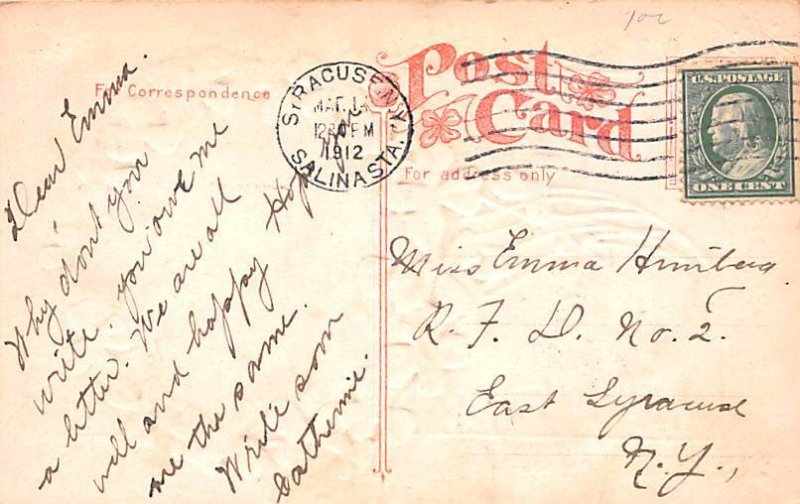 For Correspondence
Dear Emma.
Why don't you
write. you owe me
a letter. We are all
well and happy Hope
me the same.
Write soon
Catherine.
SYRACUSE N.Y.
MAR. 14
12 30 PM
1912
SALINA STA.
Post
Card
For address only
U.S. POSTAGE
ONE CENT
Miss Emma
R. F. D. No. 2.
East Syracuse
N.Y.,